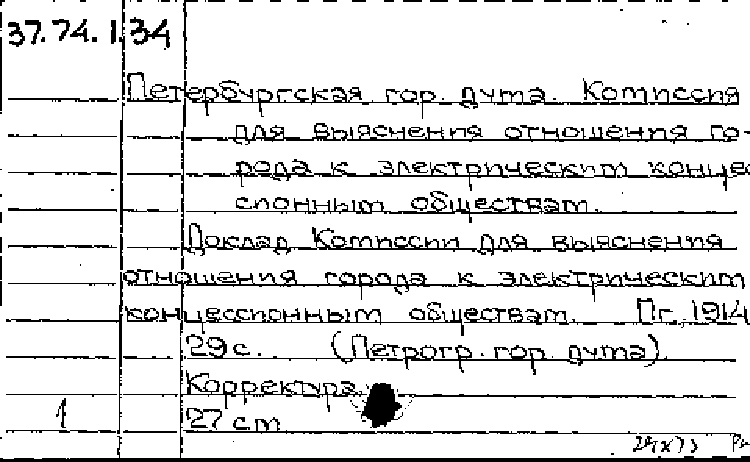 37.74.1.34
Петербургская гор. дума. Комиссия
для выяснения отношения го-
рода к электрическим концес
сионным обществам.
Доклад Комиссии для выяснения
отношения города к электрическим
концессионным обществам. Пг, 1914
29 с. (Петрогр. гор. дума)
Корректура
1 27 см